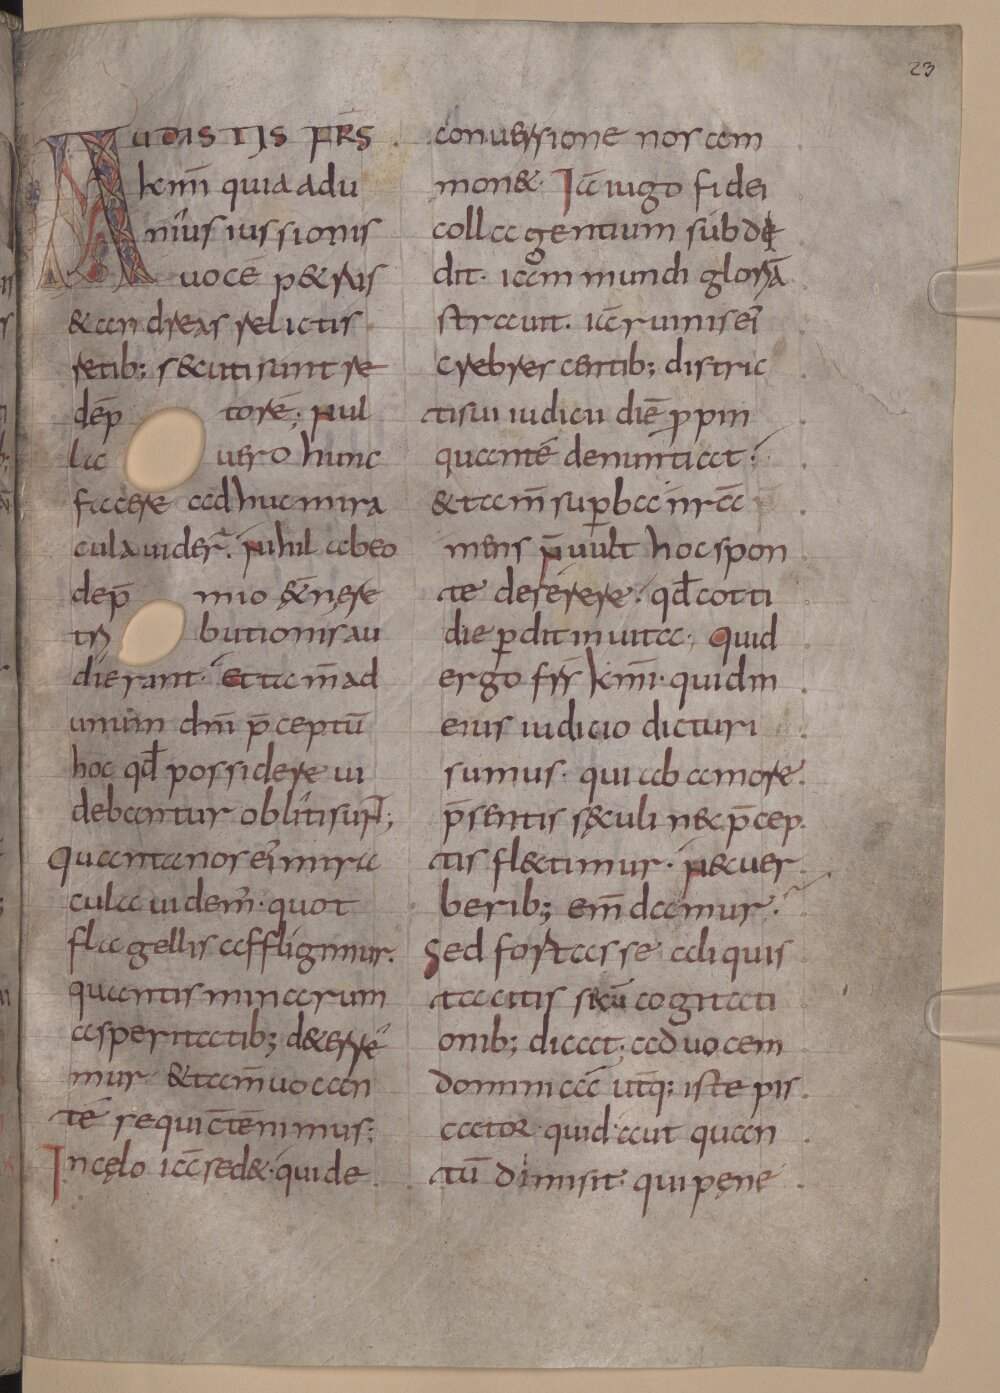 23
AUDISTIS FR̄S
km̄i quia adu
nius iussionis
uocē p&rus
&andreas relictis
retib; s&uti sunt re
dēp torē; nul
la uero hunc
facere adhuc mira
cula uider̄. nihil abeo
dep̄ mio &ęrnę
tri butionis au
dierant. & tam̄ ad
unum dn̄i p̄ceptū
hoc qđ possidere ui
debantur obliti sunt;
Quanta nos ei mira
cula uidem̄. quot
flagellis affligimur.
quantis minarum
asperitatib; d&erre
mur. & tam̄ uocan
tē sequi c̄tēnimus;
In cęlo iā sed&. qui de
conuersione nos am
mon&. Iā iugo fidei
colla gentium subde
dit. iam mundi gloriā
strauit. iā ruinis ei
crebrescentib; distric
tisui iudicii diē p̱pin
quantē denuntiat;
& tam̄ suꝑba nr̄a
mens n̄ uult hoc spon
te deserere. qđ cotti
die ꝑdit inuita; Quid
ergo fr̄s km̄i. quid in
eius iudicio dicturi
sumus. qui ab amore
p̄sentis sęculi nec p̄cep
tis fl&timur. nec uer
berib; em̄damur;
Sed fortasse aliquis
tacitis sicū cogitati
onib; dicat; ad uocem
dominicā utq; iste pis
cator quid aut quan
tū dimisit. qui pene